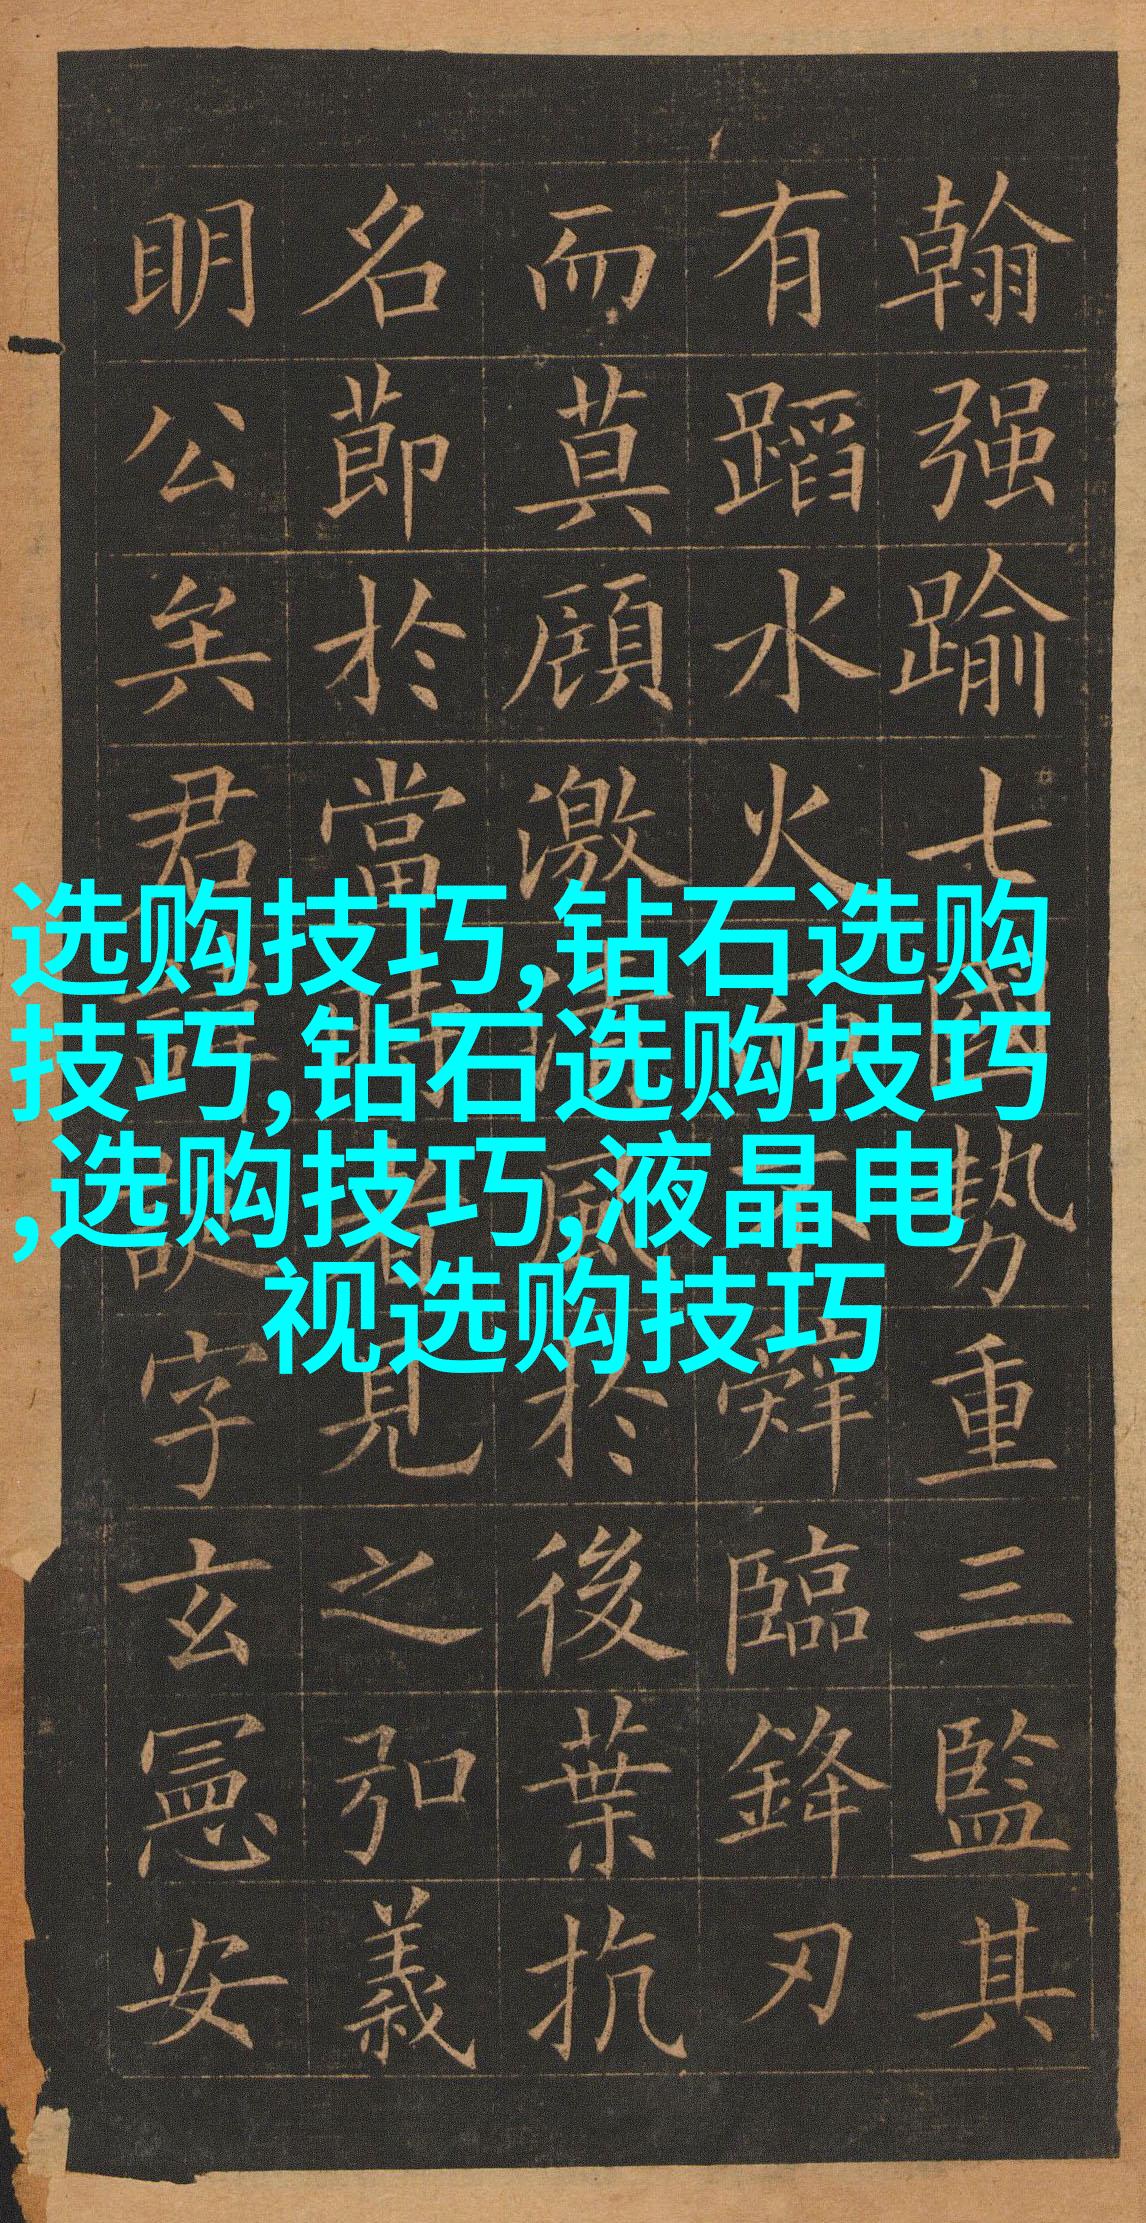 翰强踰七國势重三監其
有蹈水火而不辭臨鋒刃
而莫顧激清風於後葉抗
名莭於當時者見之弘義
明公矣君諱誕字玄憲安
选购技巧,钻石选购
技巧,钻石选购技巧
,选购技巧,液晶电
视选购技巧